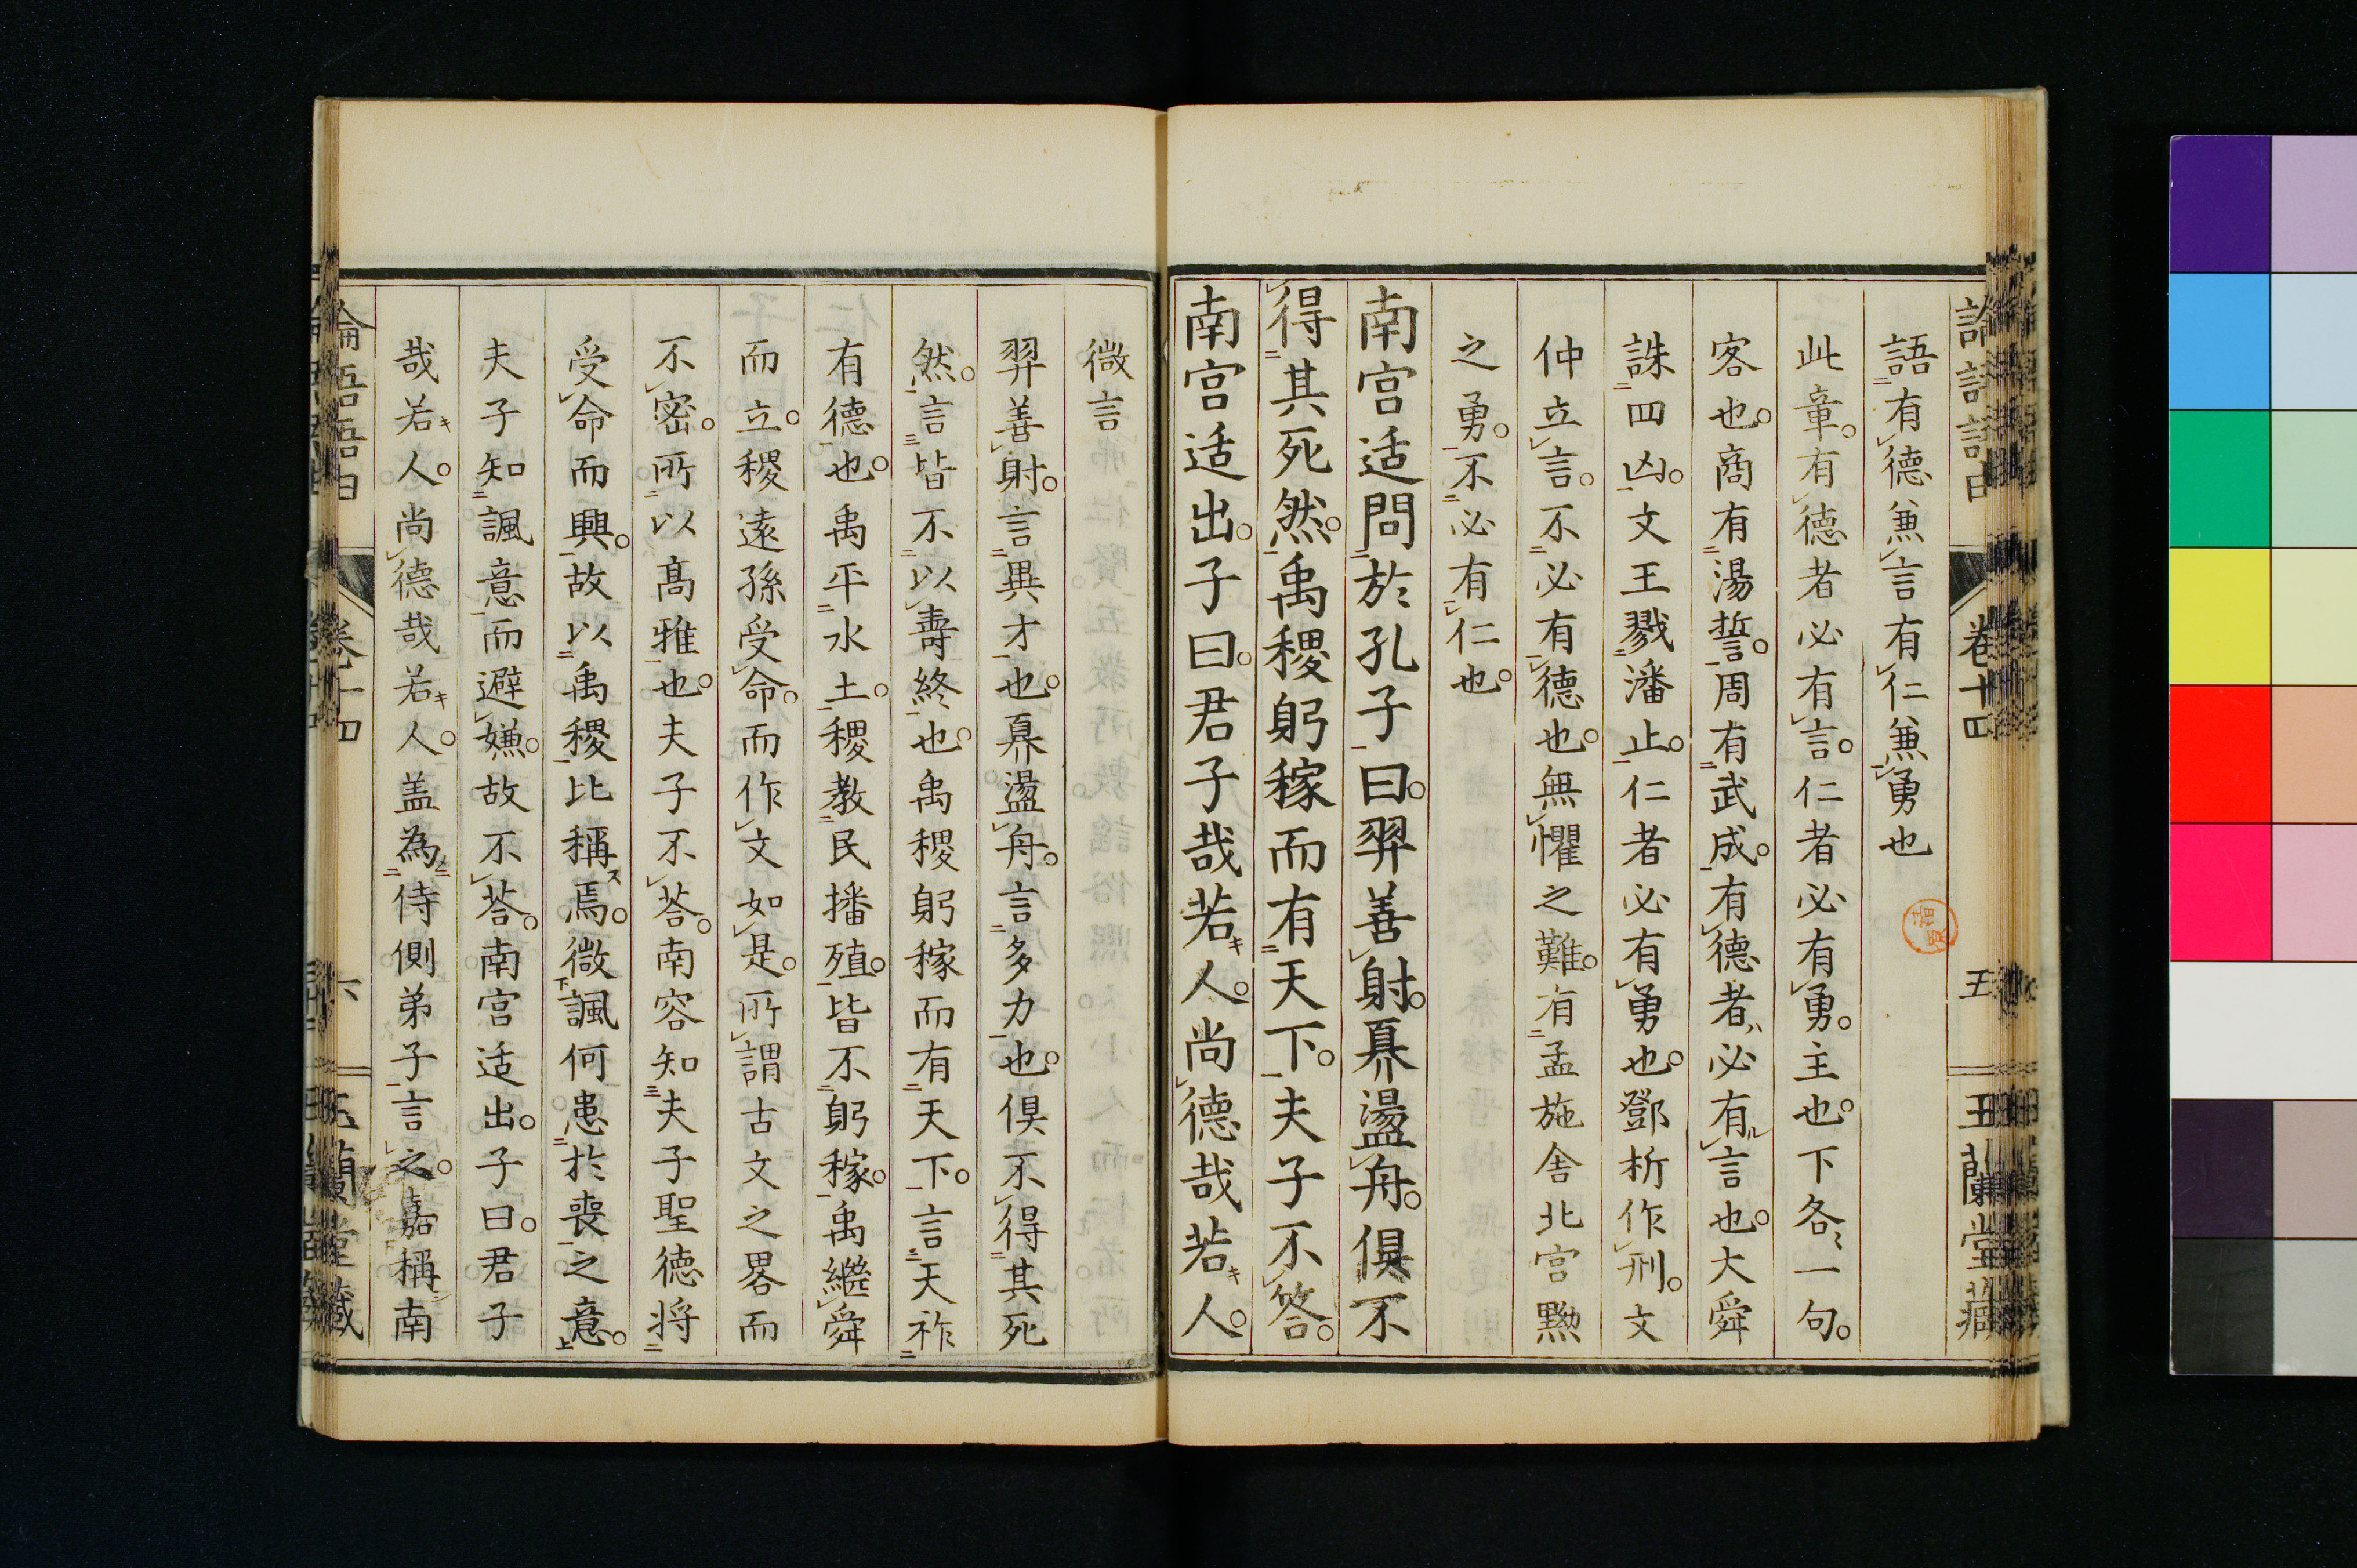 語有德兼言有仁兼勇也
此章有德者必有言仁者必有勇主也下各一句
客也商有湯誓周有武成有德者必有言也大舜
誅四凶文王戮潘止仁者必有勇也鄧析作刑文
仲立言不必有德也無懼之難有孟施舍北宮黝
之勇不必有仁也
南宮适問於孔子曰羿善射奡盪舟俱不
得其死然禹稷躬稼而有天下夫子不答
南宮适出子曰君子哉若人尚德哉若人
微言
羿善射言異才也奡盪舟言多力也俱不得其死
然言皆不以壽終也禹稷躬稼而有天下言天祚
有德也禹平水土稷教民播殖皆不躬稼禹繼舜
而立稷遠孫受命而作文如是所謂古文之畧而
不密所以高雅也夫子不荅南容知夫子聖德将
受命而興故以禹稷比稱焉微諷何患於喪之意
夫子知諷意而避嫌故不荅南宮适出子曰君子
哉若人尚德哉若人盖為侍側弟子言之嘉稱南
卷十四
六
卷十四
五
玉蘭堂藏